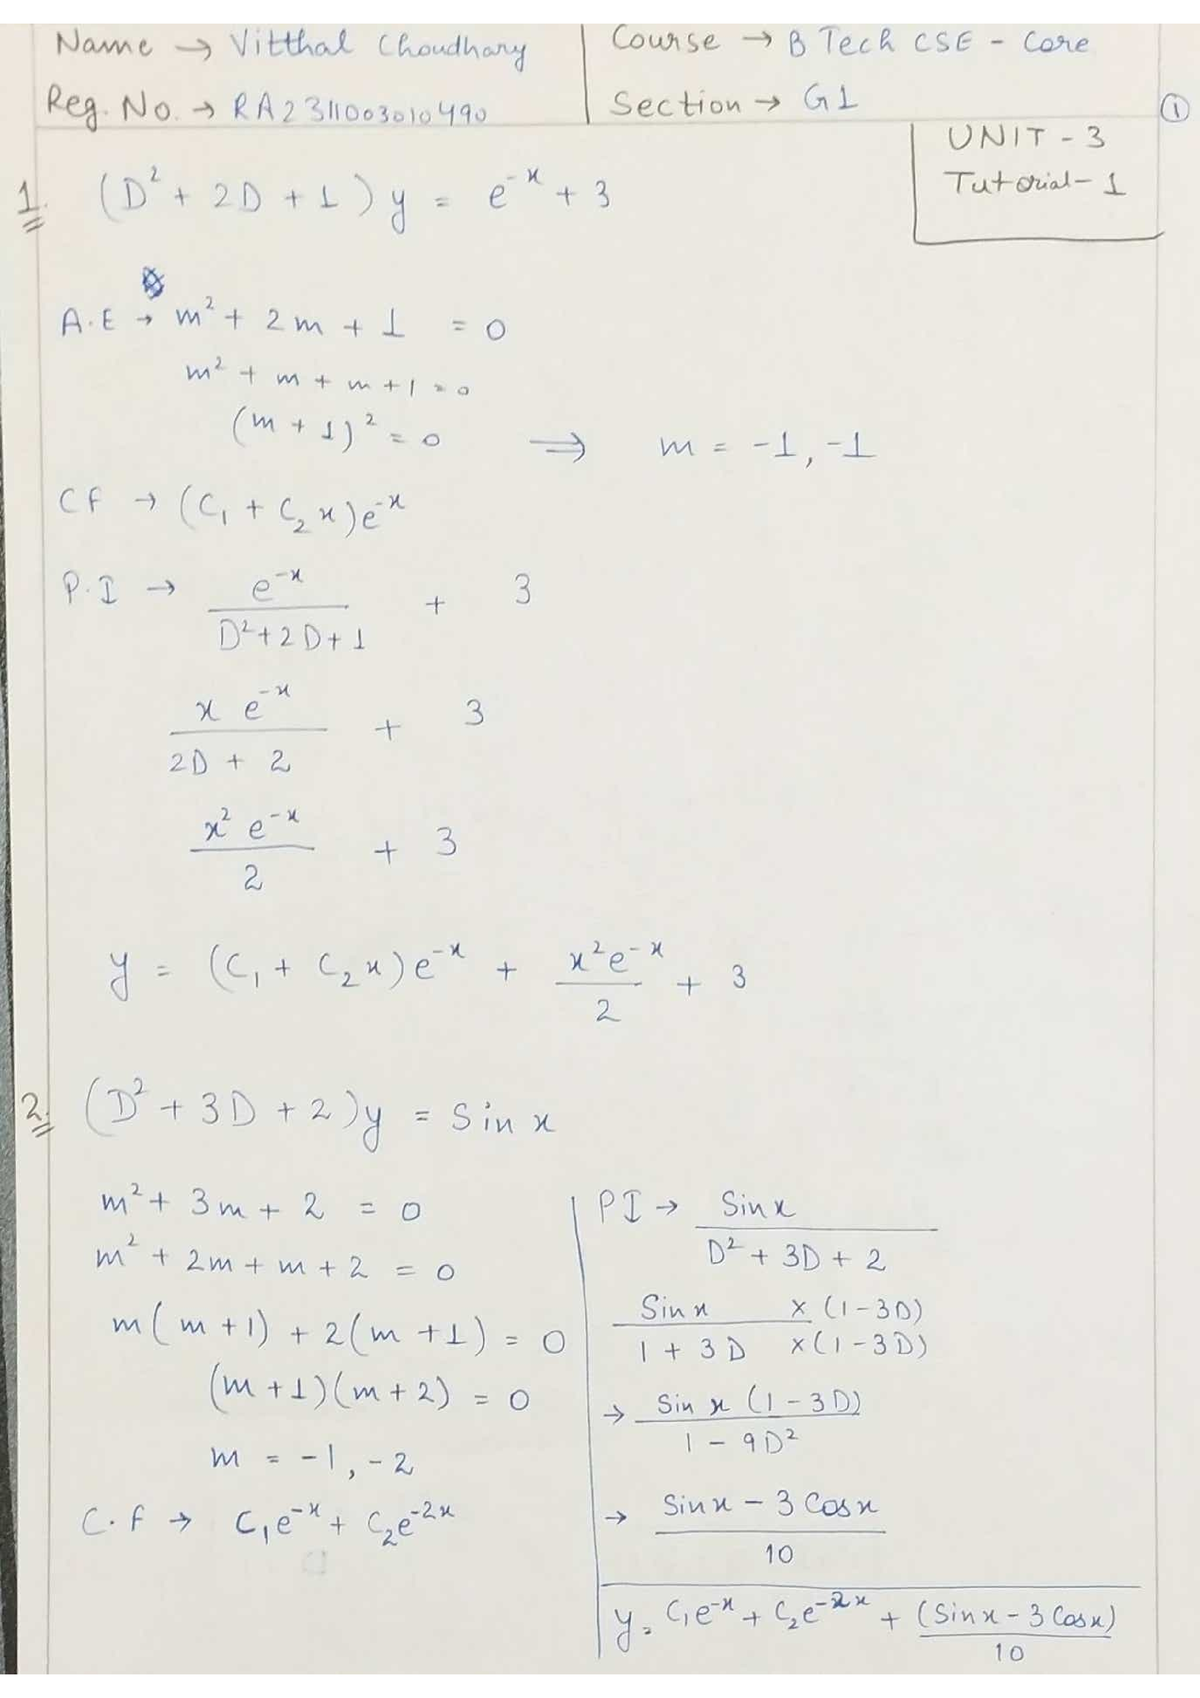 Name → Vitthal Choudhary
Reg. No. → RA2311003010490
Course → B Tech CSE - Core
Section → G1
①
UNIT - 3
Tutorial - 1
1. (D² + 2D + 1) y = e^-x + 3
A.E → m² + 2m + 1 = 0
m² + m + m + 1 = 0
(m + 1)² = 0 ⟹ m = -1, -1
CF → (C₁ + C₂ x)e^-x
P.I → e^-x / (D² + 2D + 1) + 3
x e^-x / (2D + 2) + 3
x² e^-x / 2 + 3
y = (C₁ + C₂x)e^-x + x²e^-x / 2 + 3
2. (D² + 3D + 2)y = Sin x
m² + 3m + 2 = 0
m² + 2m + m + 2 = 0
m(m + 1) + 2(m + 1) = 0
(m + 1)(m + 2) = 0
m = -1, -2
C.F → C₁e^-x + C₂e^-2x
PI → Sinx / (D² + 3D + 2)
Sin x × (1 - 3D) / 1 + 3D × (1 - 3D)
→ Sin x (1 - 3D) / (1 - 9D²)
→ (Sinx - 3 Cosx) / 10
y = C₁e^-x + C₂e^-2x + (Sinx - 3 Cosx) / 10